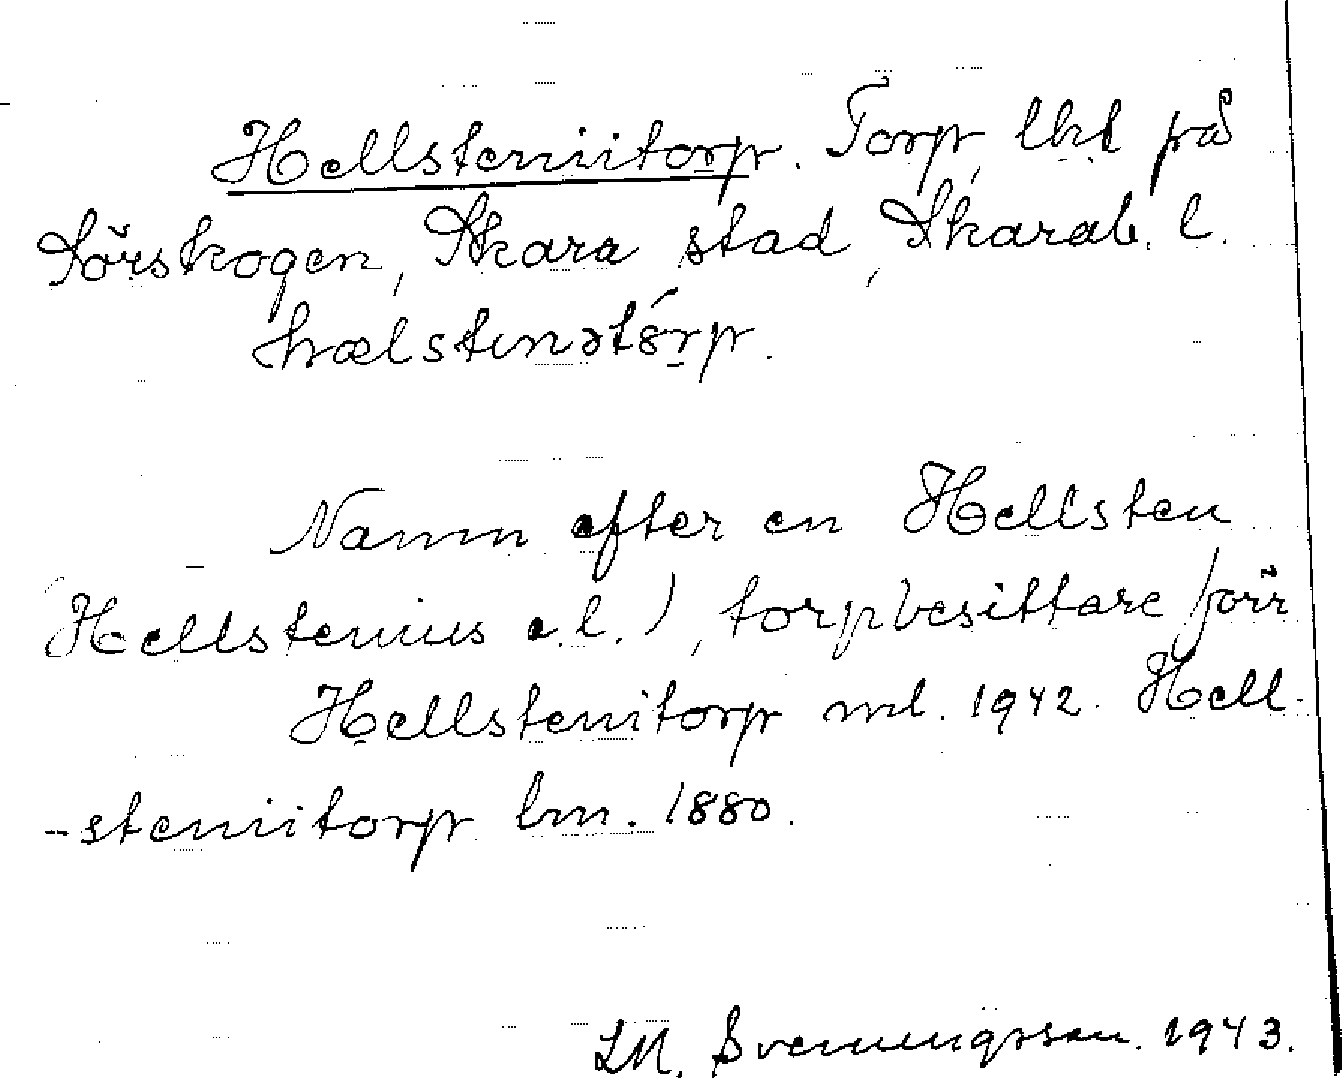 Hellsteniitorp. Torp, lht på
Sörskogen, Skara stad, Skarab. l.
hælstenətórp.
Namn efter en Hellsten
(Hellstenius e.l.), torpbesittare förr
Hellstenitorp ml. 1942. Hell-
-steniitorp lm. 1880.
LM. Svenungsson. 1943.